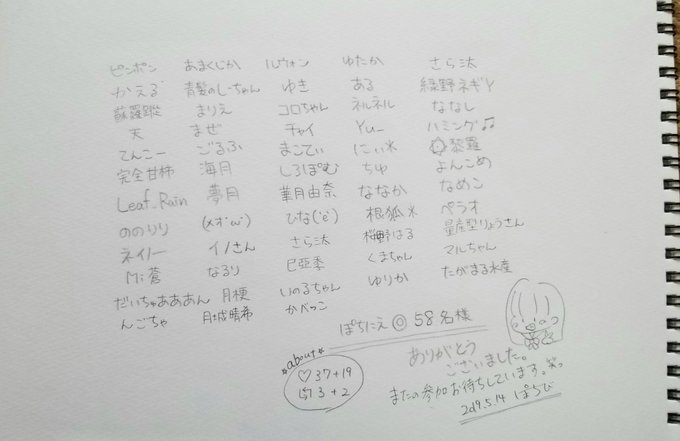 ピンポン あまくじか ルウォン ゆたか さら汰
かえる 青髪のしーちゃん ゆき ある 緑野ネギY
蘇羅蹤 まりえ コロちゃん ネルネル ななし
天 まぜ チャイ Yu_ ハミング♫
てんこー ごるふ まこてぃ にぃ* 黎羅
完全甘柿 海月 しろぽむ ちゅ よんこめ
Leaf.Rain 夢月 華月由奈 ななか なめこ
ののりり ひな 根狐* ペラオ
ネイノー イノさん さら汰 桜野はる 量産型りょうさん
Mi蒼 なるり 巳亞季 くまちゃん マルちゃん
だいちゃあああん 月梗 いのるちゃん ゆりか たがまる水産
んごちゃ 月城晴希 かべっこ
ぽちにえ◎58名様
*about*
♡37+19
3+2
ありがとう
ございました。
またの参加お待ちしています。
2019.5.14 ぱちび